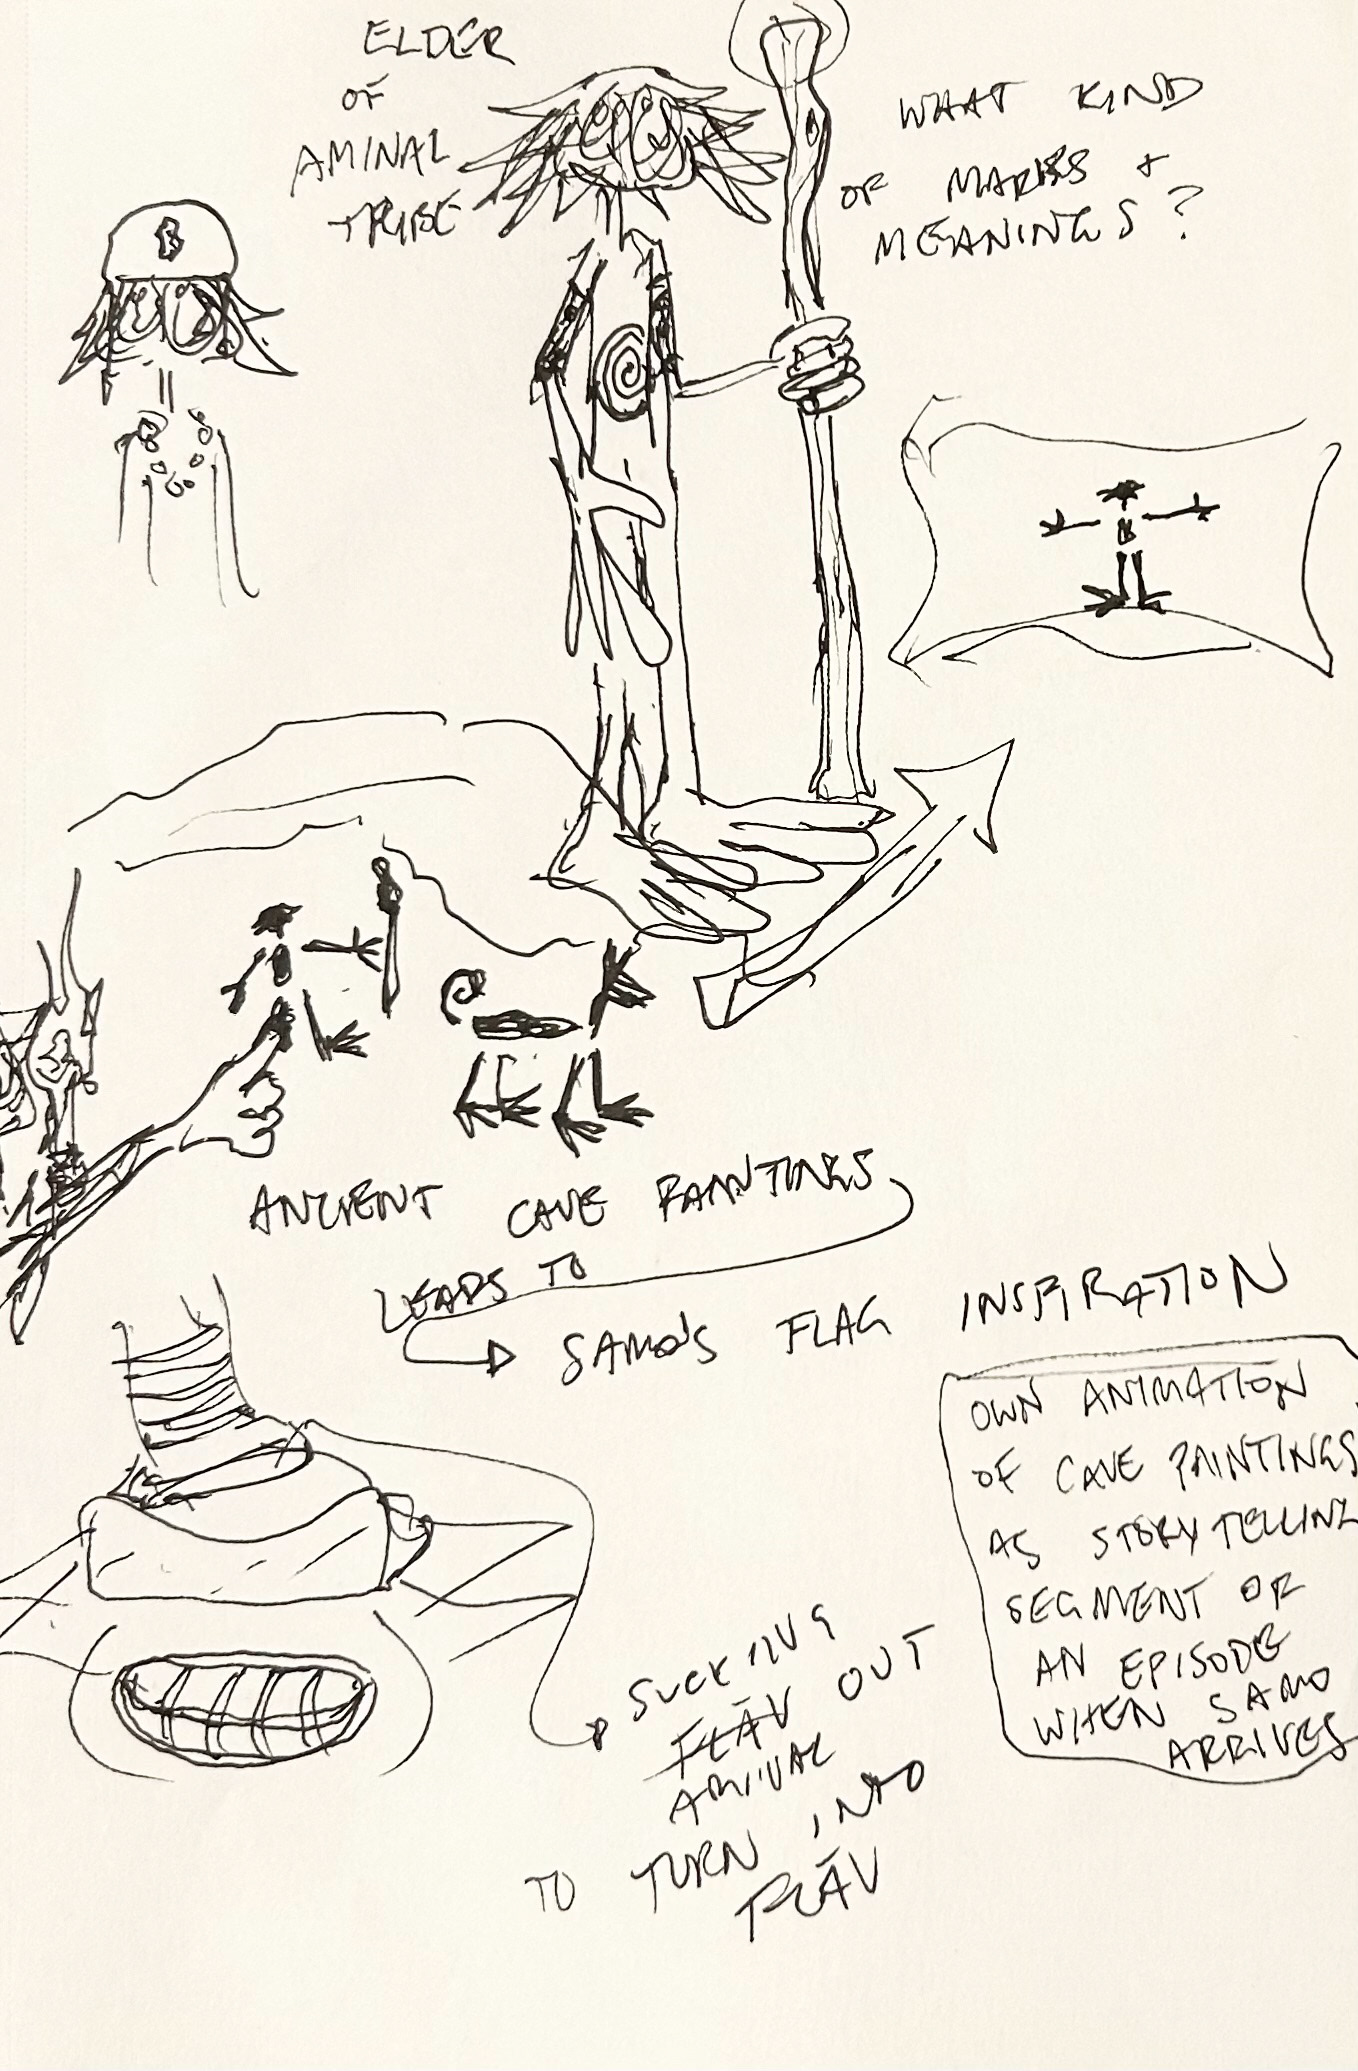 ELDER
OF
AMINAL
TRIBE
WHAT KIND
OF MARKS +
MEANINGS?
B
B
ANCIENT CAVE PAINTINGS
LEADS TO
SAMO'S FLAG INSPIRATION
OWN ANIMATION
OF CAVE PAINTINGS
AS STORYTELLING
SEGMENT OF
AN EPISODE
WHEN SAMO
ARRIVES
SUCKING
FLĀV OUT
AMINAL
TO TURN INTO
FLĀV